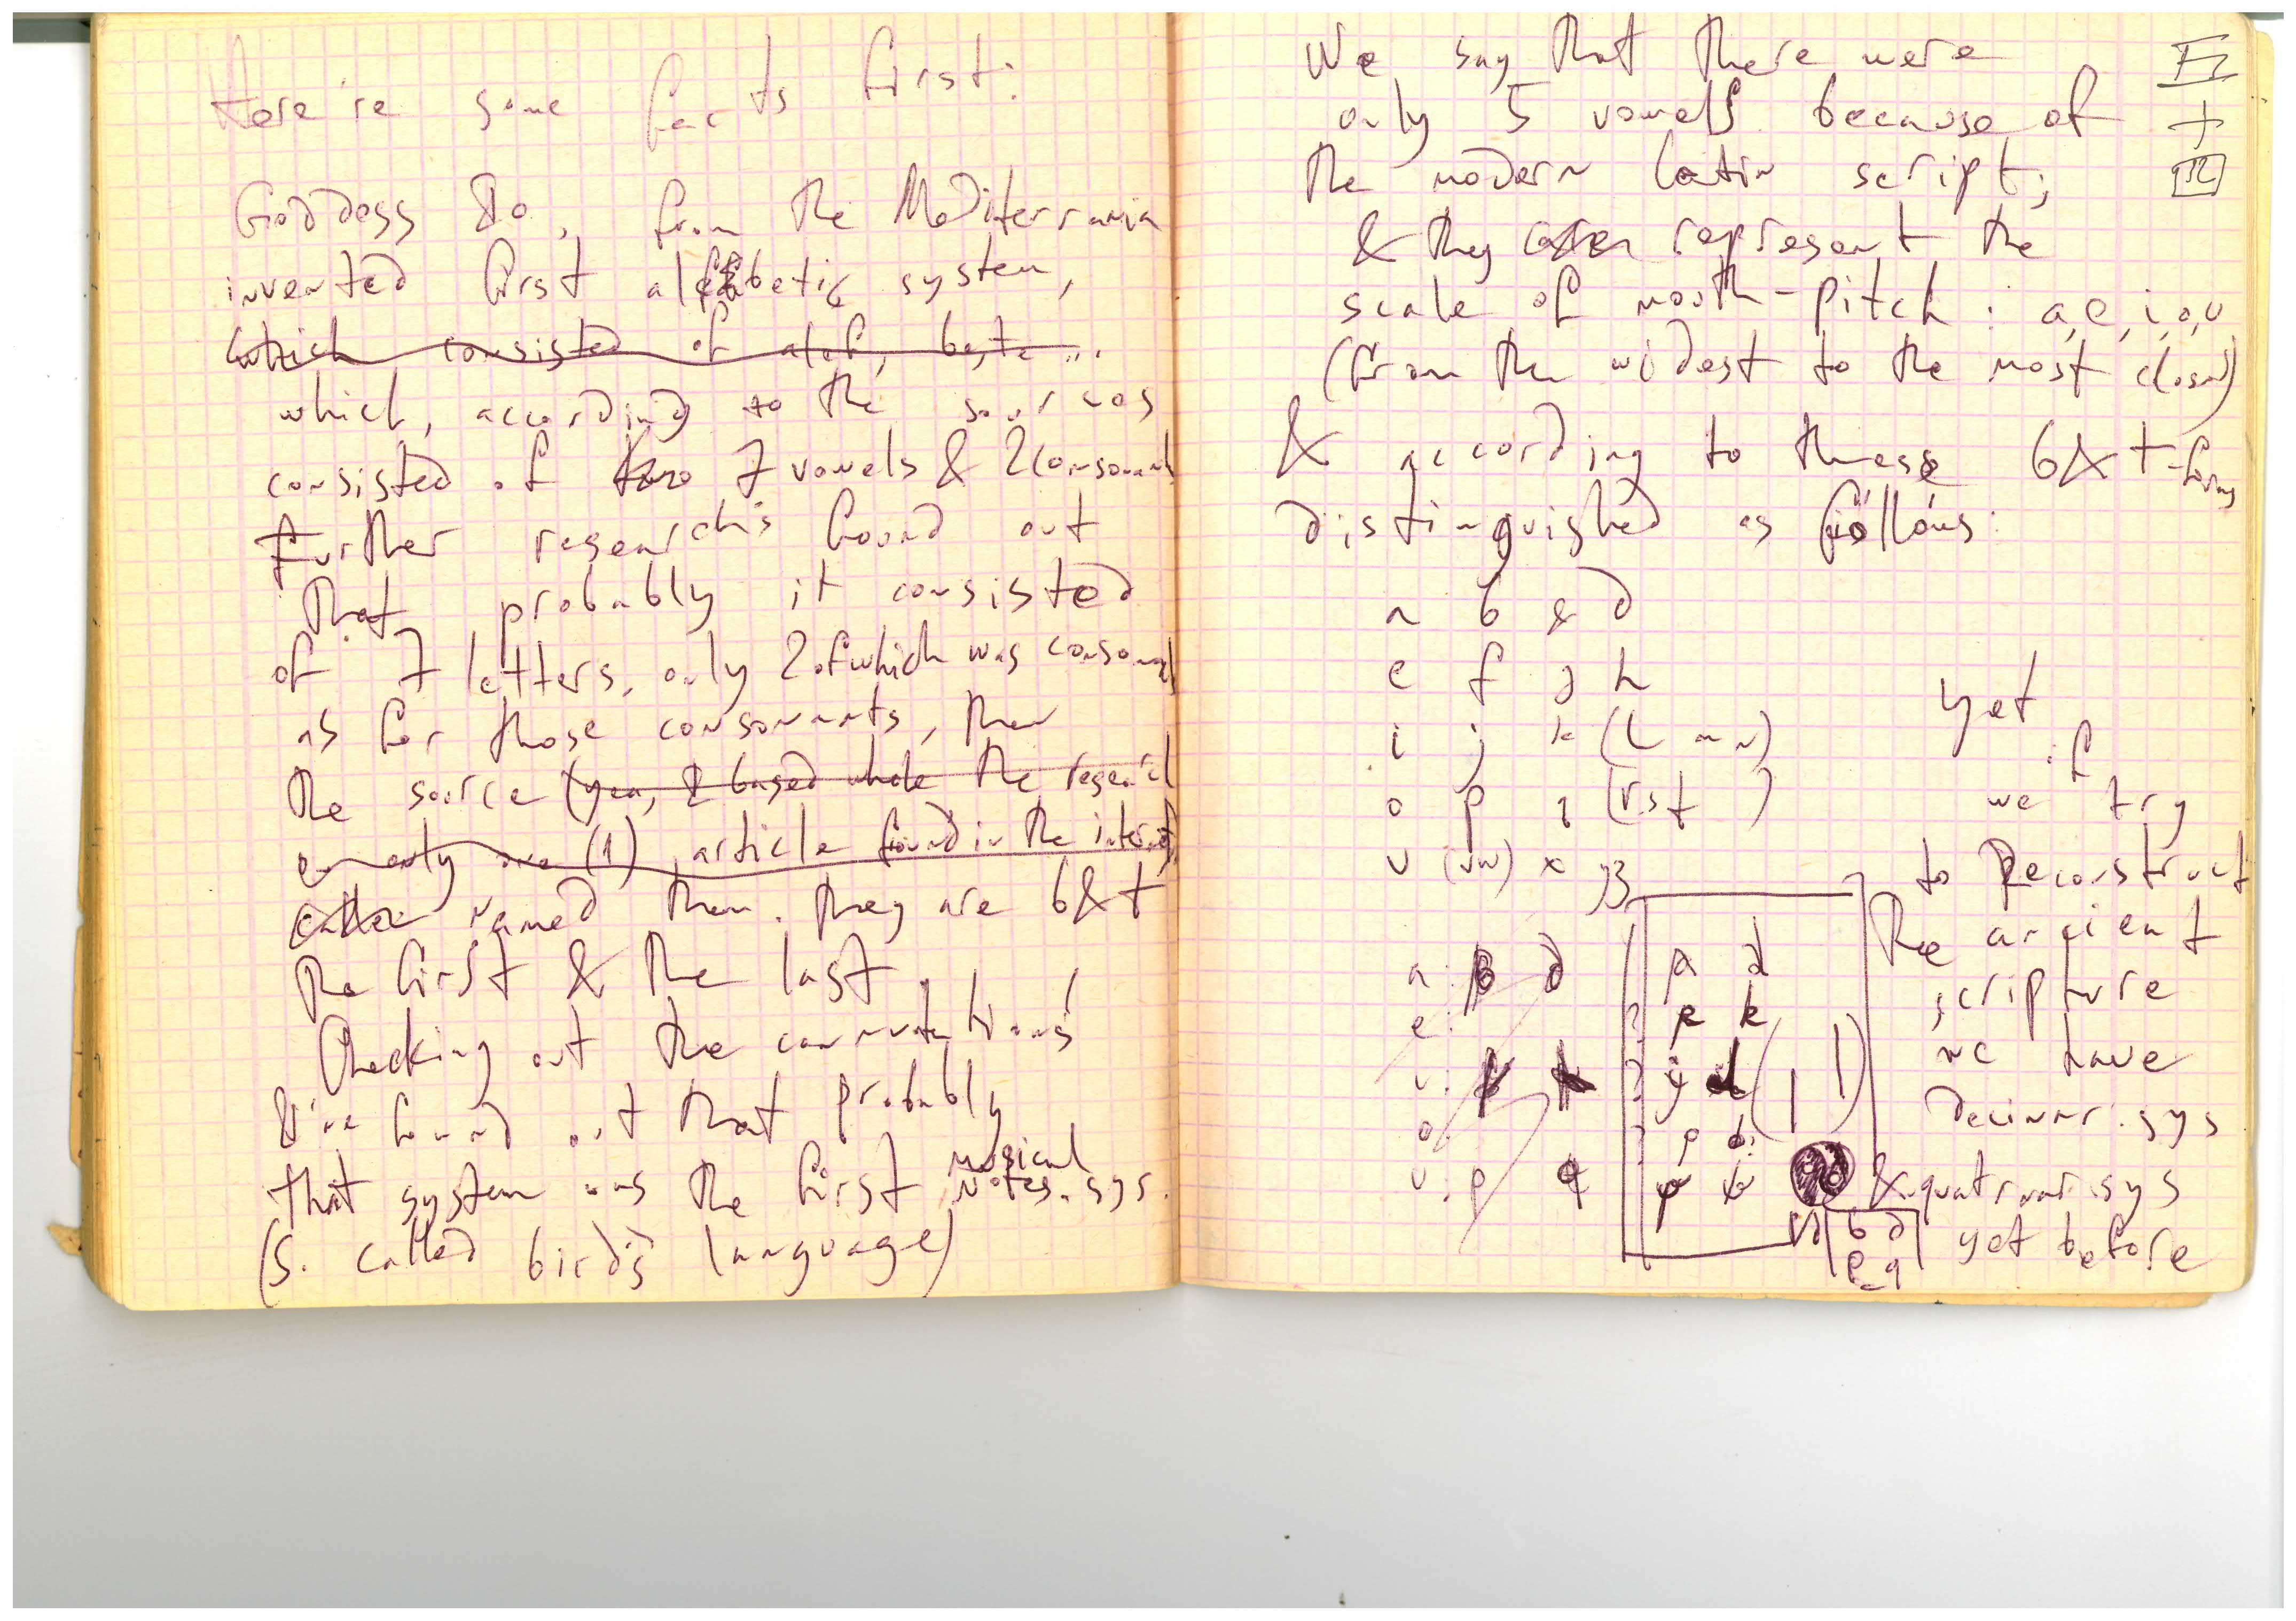 Here're some facts first:
Goddess Io, from the Mediterrania
invented first alfabetic system,
which consisted of alef, beste...
which, according to the sources
consisted of 7 vowels & 2 consonants
Further research's found out
that probably it consisted
of 7 letters, only 2 of which was consonant
as for those consonants, then
the source (yea, I based whole the reserch
on only one (1) article found in the internet)
named them. they are b&t
the first & the last.
Checking out the connotations
I've found out that probably
that system was the first musical notes. sys.
(s. called bird's language)
We say that there were
only 5 vowels because of
the modern latin script;
& they represent the
scale of mouth-pitch: a,e,i,o,u
(from the widest to the most closed)
& according to these b&t-forms
distinguished as follows:
a b & d
e f g h
i j k (l m n)
o p q (r s t)
u (vw) x yz
五
十
四
yet
if
we try
to Reconstruct
the ancient
scripture
we have
decimar. sys
& quatrnar. sys
yet before
a: b d
e:
i:
o:
u: p q
b d
p q